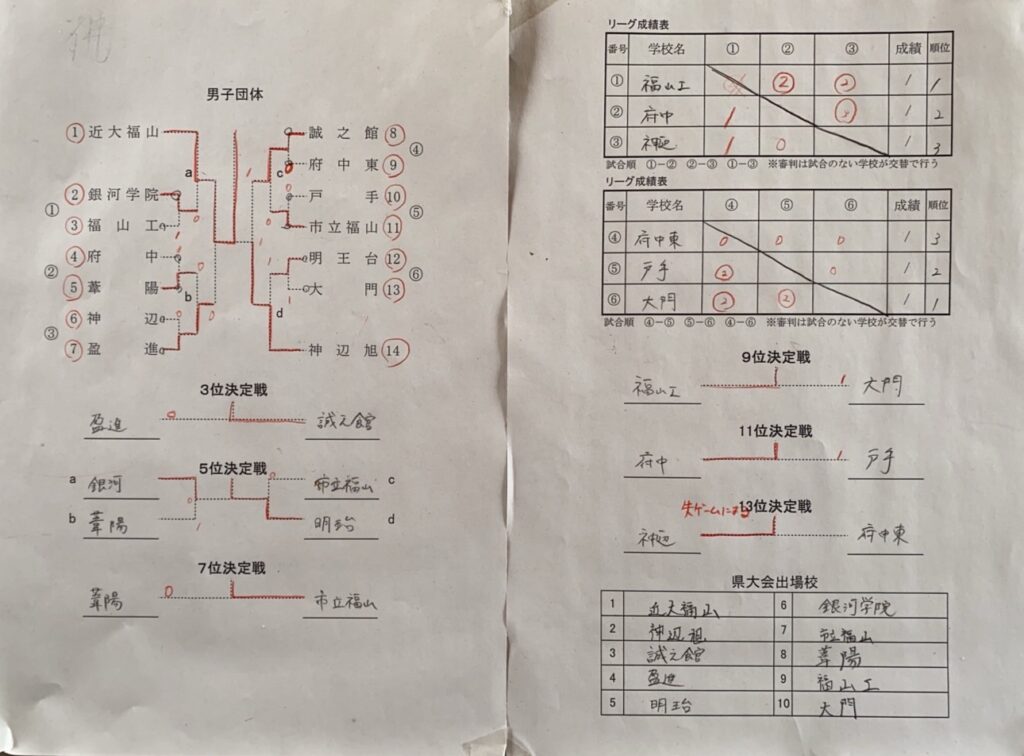 男子団体
① 近大福山
② 銀河学院
③ 福山工
④ 府中
⑤ 葦陽
⑥ 神辺
⑦ 盈進
① ② ③
a b c d
誠之館 ⑧
府中東 ⑨
戸手 ⑩
市立福山 ⑪
明王台 ⑫
大門 ⑬
神辺旭 ⑭
④ ⑤ ⑥
3位決定戦
盈進 0 誠之館
5位決定戦
a 銀河 市立福山 c
b 葦陽 明王台 d
7位決定戦
葦陽 0 市立福山
リーグ成績表
番号 学校名 ① ② ③ 成績 順位
① 福山工 ② ② 1 1
② 府中 1 1 2
③ 神辺 1 0 1 3
試合順 ①−② ②−③ ①−③ ※審判は試合のない学校が交替で行う
リーグ成績表
番号 学校名 ④ ⑤ ⑥ 成績 順位
④ 府中東 0 0 0 1 3
⑤ 戸手 ② 0 1 2
⑥ 大門 ② ② 1 1
試合順 ④−⑤ ⑤−⑥ ④−⑥ ※審判は試合のない学校が交替で行う
9位決定戦
福山工 1 大門
11位決定戦
府中 1 戸手
13位決定戦
失ゲームによる
神辺 府中東
県大会出場校
1 近大福山 6 銀河学院
2 神辺旭 7 市立福山
3 誠之館 8 葦陽
4 盈進 9 福山工
5 明王台 10 大門